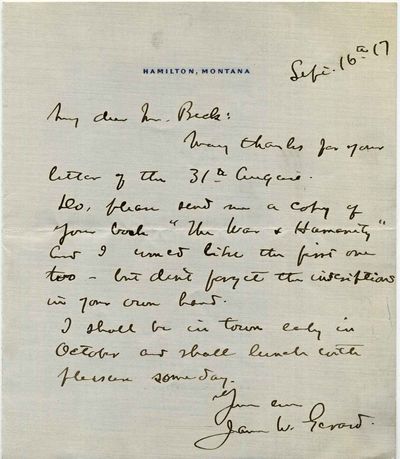 Sept. 16th 17
HAMILTON, MONTANA
My dear Mr. Beck:
Many thanks for your
letter of the 31st August.
Do, please send me a copy of
your book "The War & Humanity"
and I would like the first one
too - but don't forget the inscriptions
in your own hand.
I shall be in town early in
October and shall lunch with
pleasure someday.
Yours ever
James W. Gerard.